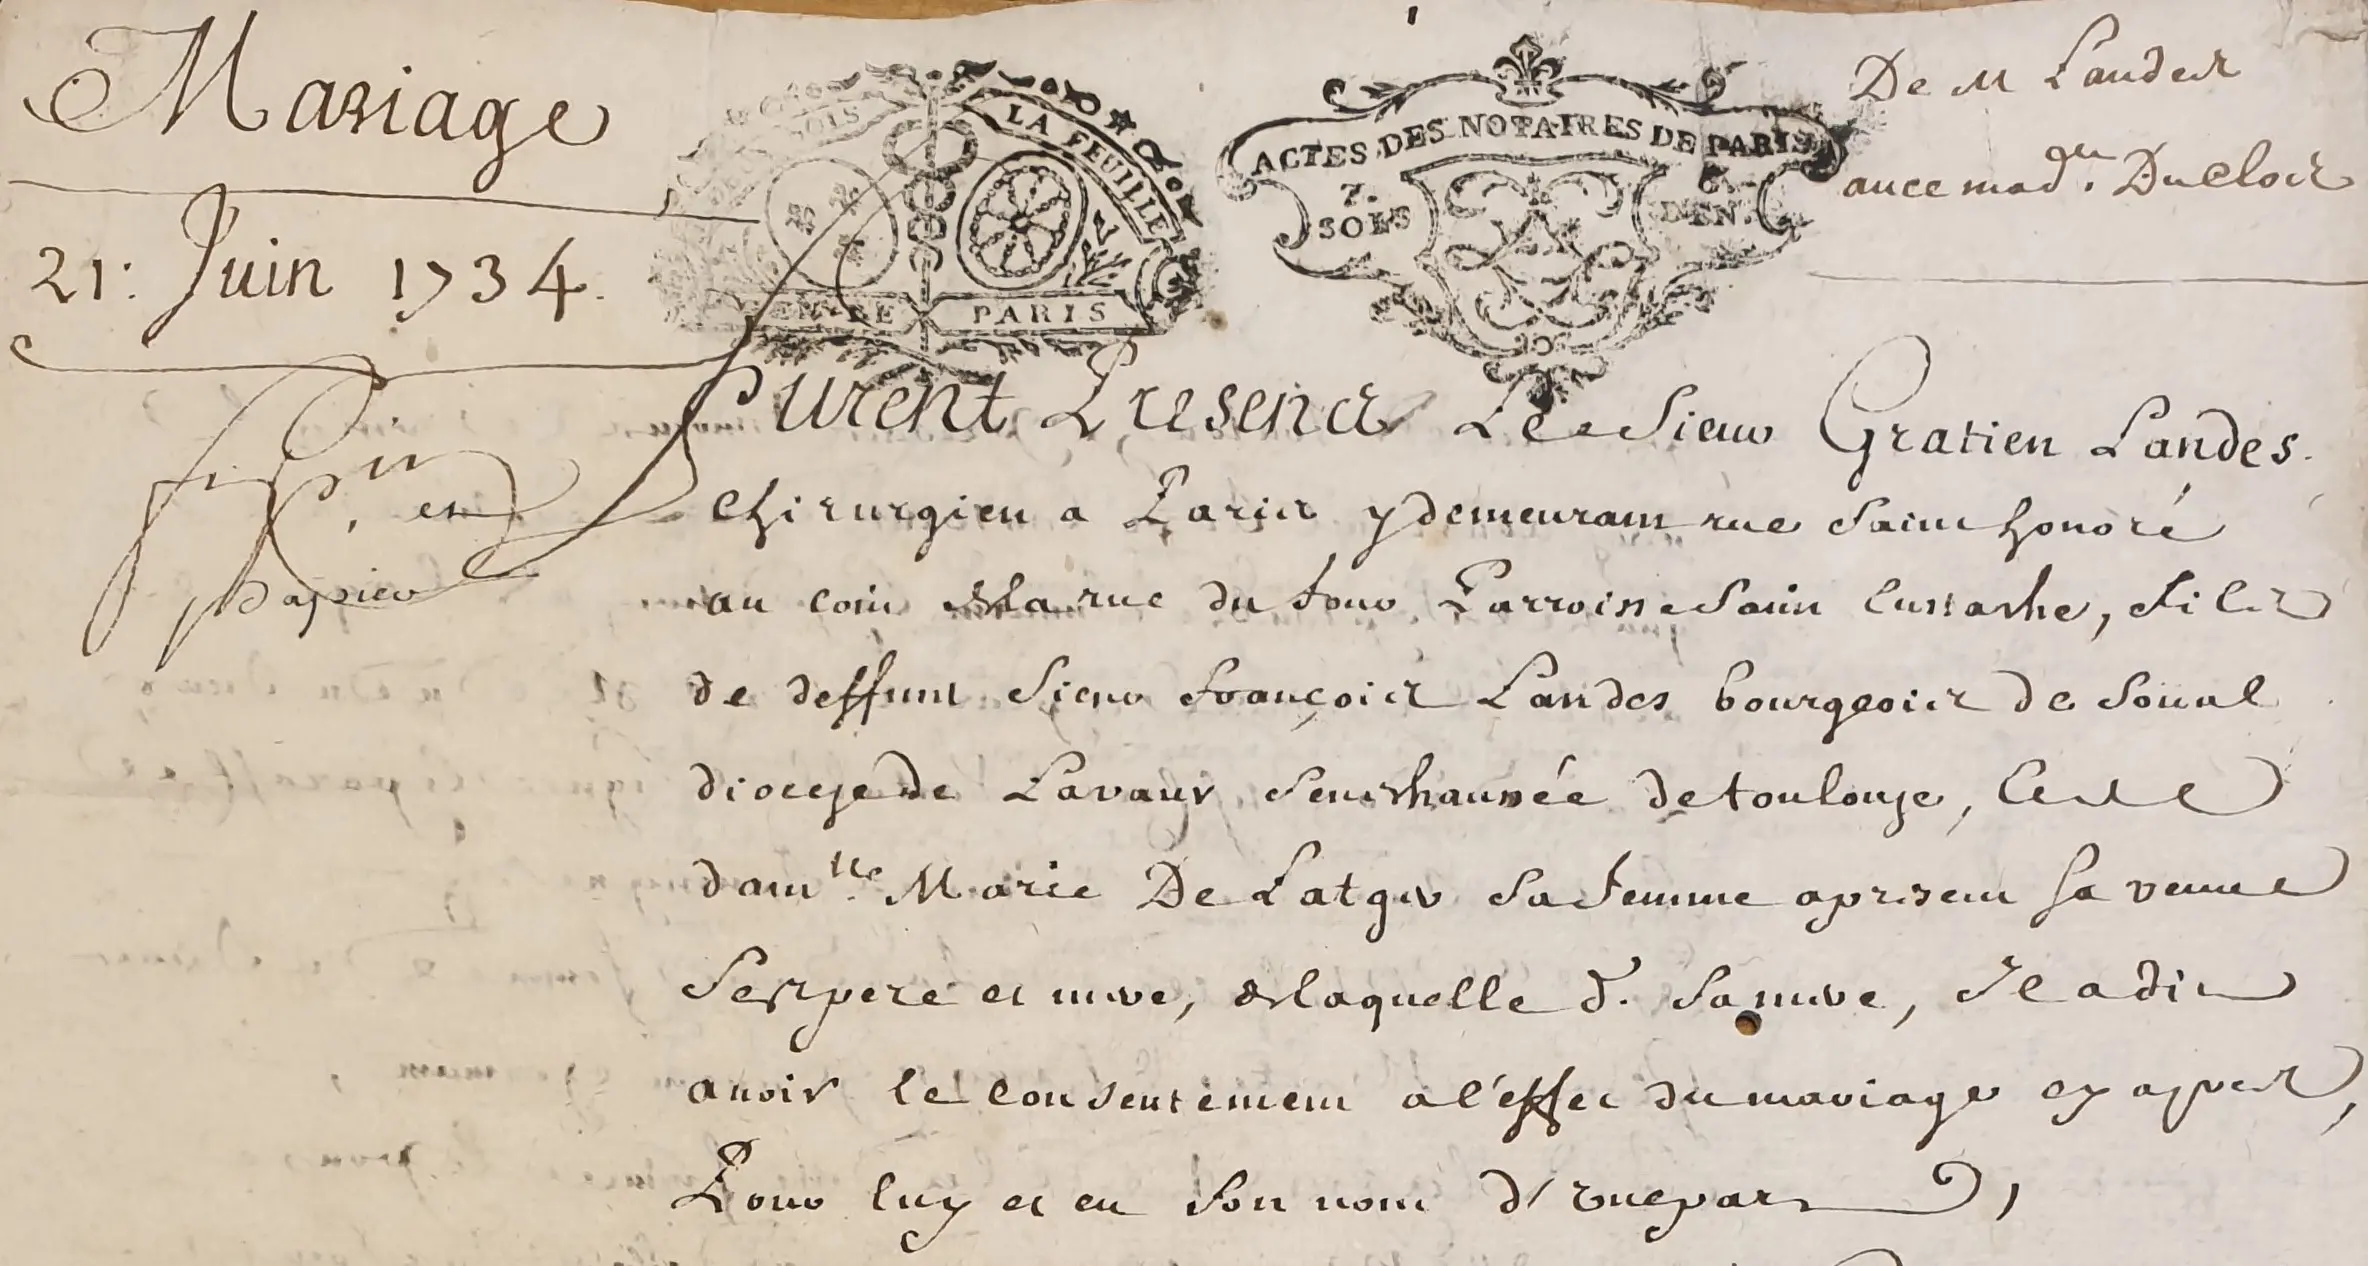 Mariage
21: Juin 1734.
LA FEUILLE
PARIS
ACTES DES NOTAIRES DE PARIS
7. SOLS 6. DEN.
De M Landes
avec mad.elle Duclois
en
papier
Furent Presens Le Sieur Gratien Landes.
Chirurgien a Paris y demeurant rue Saint honoré
au coin de la rue du four Parroisse Saint Eustache, fils
de deffunt Sieur François Landes bourgeois de Soual
diocese de Lavaur Seneschaussée de toulouze, Et de
dam.lle Marie De Latger sa femme apresent sa veuve
Ses pere et mere, de laquelle d. Sa mere, Il a dit
avoir le consentement a l'effet du mariage cy apres,
Pour luy et en son nom d'une part,